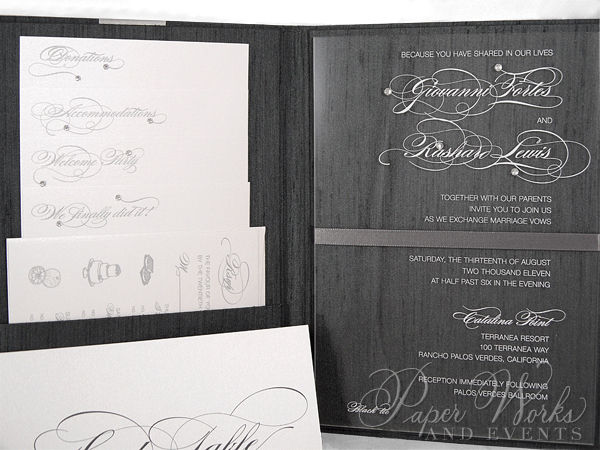 Donations
Accommodations
Welcome Party
We finally did it!
Reply
THE FAVOUR OF
BY THE TWENTIETH
M
BECAUSE YOU HAVE SHARED IN OUR LIVES
Giovanni Fortes
AND
Rashard Lewis
TOGETHER WITH OUR PARENTS
INVITE YOU TO JOIN US
AS WE EXCHANGE MARRIAGE VOWS
SATURDAY, THE THIRTEENTH OF AUGUST
TWO THOUSAND ELEVEN
AT HALF PAST SIX IN THE EVENING
Catalina Point
TERRANEA RESORT
100 TERRANEA WAY
RANCHO PALOS VERDES, CALIFORNIA
RECEPTION IMMEDIATELY FOLLOWING
PALOS VERDES BALLROOM
Black tie
Paper Works
AND EVENTS
Table